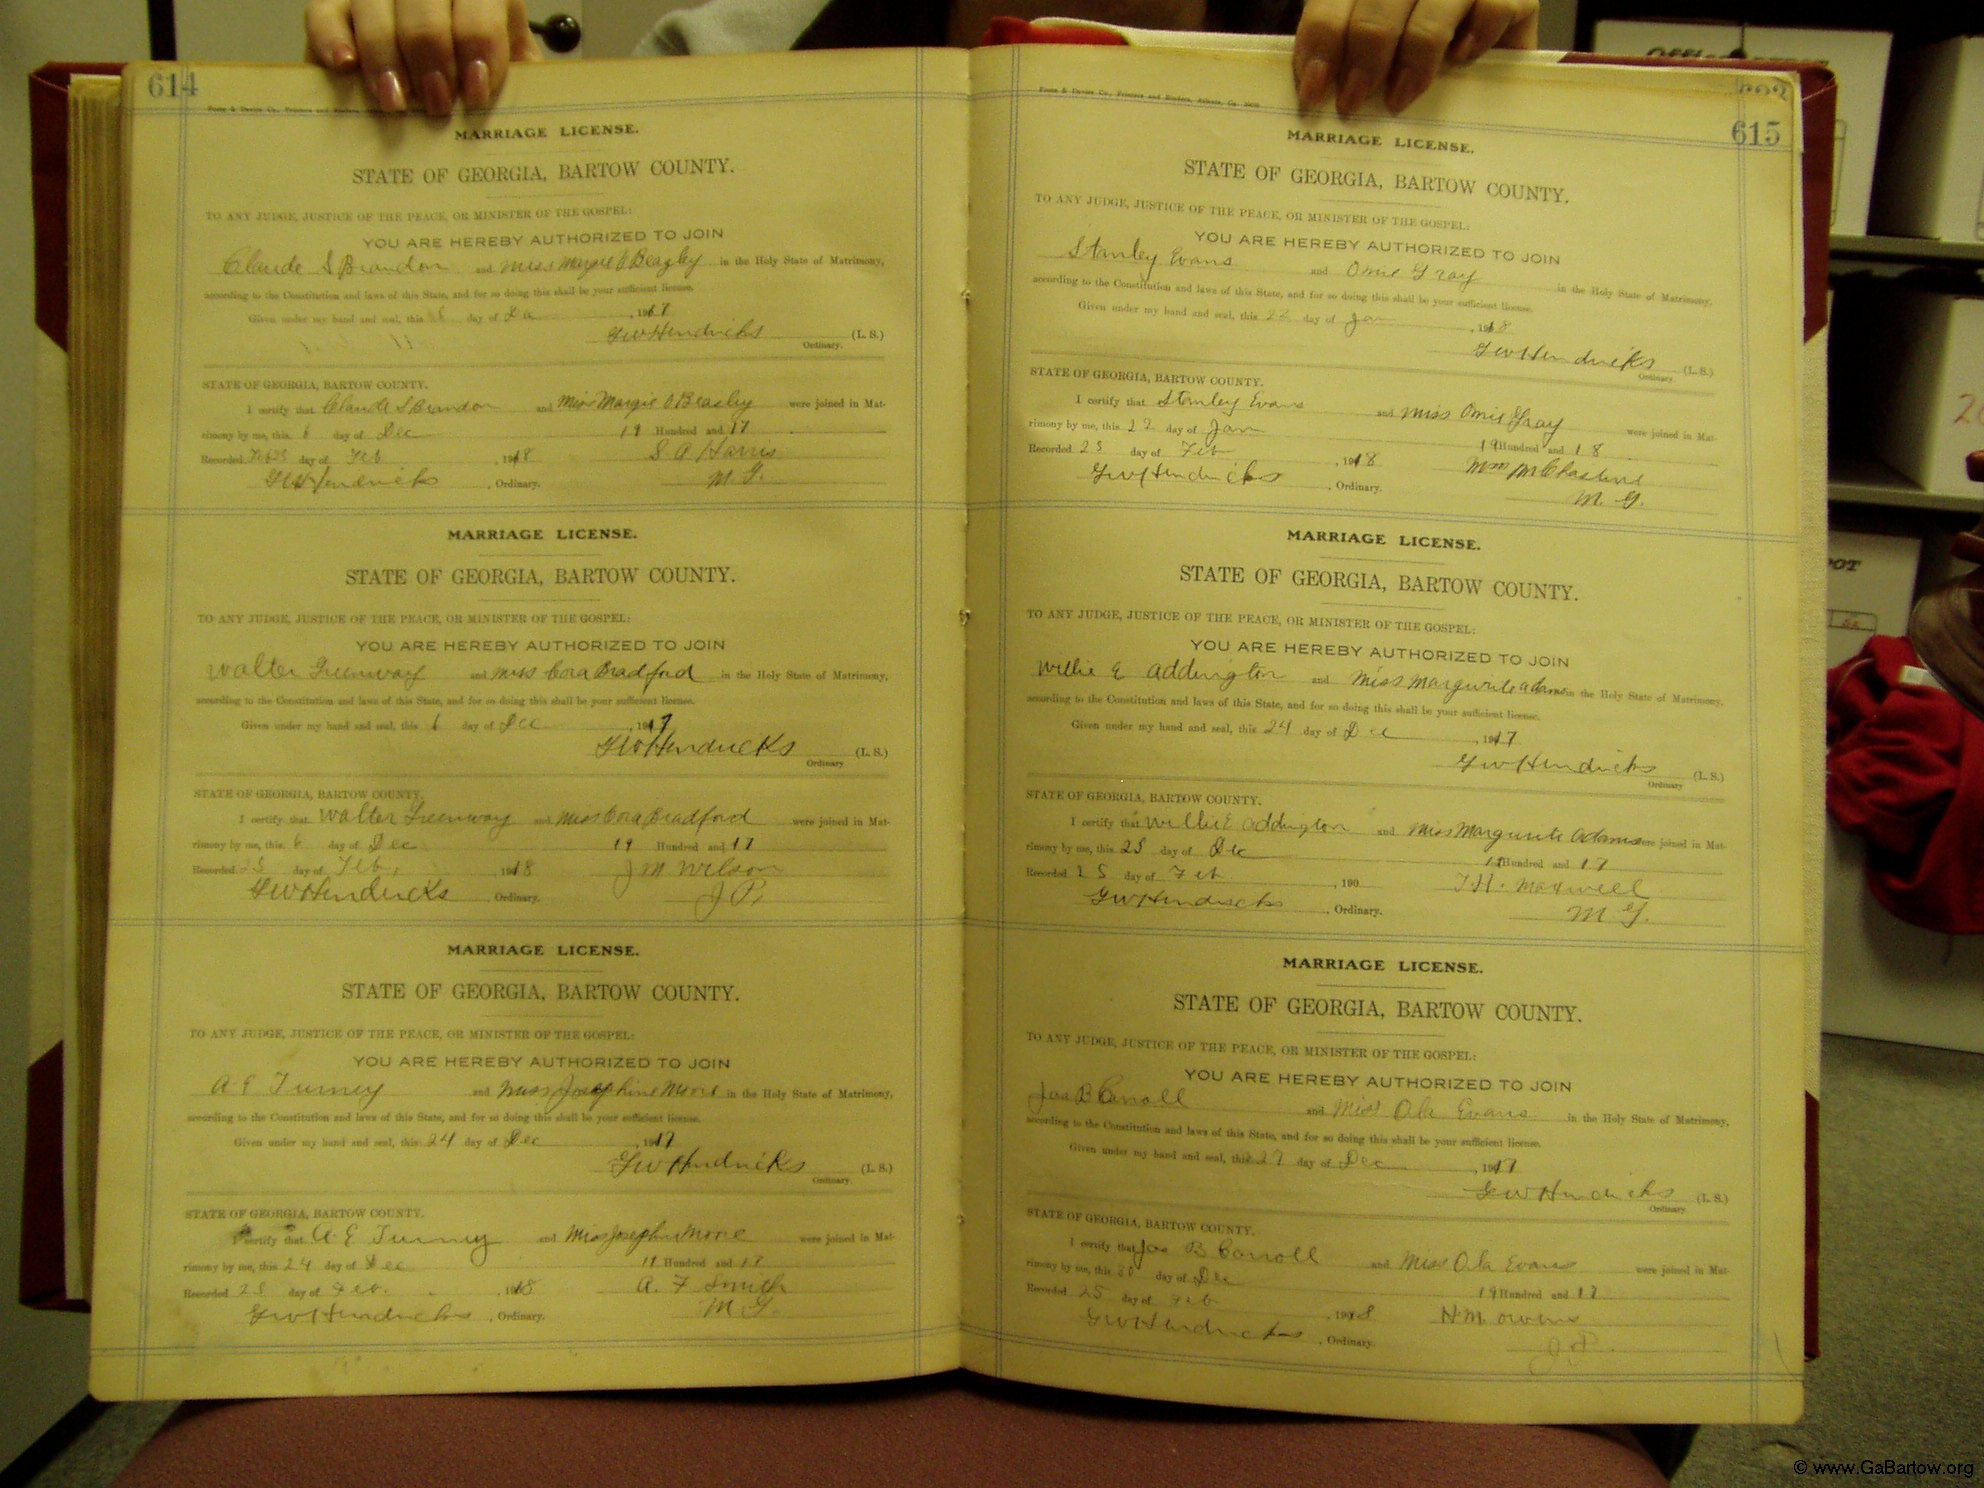 614
MARRIAGE LICENSE.
STATE OF GEORGIA, BARTOW COUNTY.
TO ANY JUDGE, JUSTICE OF THE PEACE, OR MINISTER OF THE GOSPEL:
YOU ARE HEREBY AUTHORIZED TO JOIN
Claude S Brandon and Miss Margie O Beazley in the Holy State of Matrimony,
according to the Constitution and laws of this State, and for so doing this shall be your sufficient license.
Given under my hand and seal, this day of Dec , 1917
GW Hendricks (L. S.)
Ordinary.
STATE OF GEORGIA, BARTOW COUNTY.
I certify that Claude S Brandon and Miss Margie O Beasley were joined in Mat-
rimony by me, this 6 day of Dec 19 Hundred and 17
Recorded day of Feb , 1918 S A Harris
GW Hendricks , Ordinary. M. G.
MARRIAGE LICENSE.
STATE OF GEORGIA, BARTOW COUNTY.
TO ANY JUDGE, JUSTICE OF THE PEACE, OR MINISTER OF THE GOSPEL:
YOU ARE HEREBY AUTHORIZED TO JOIN
Walter Greenway and Miss Cora Bradford in the Holy State of Matrimony,
according to the Constitution and laws of this State, and for so doing this shall be your sufficient license.
Given under my hand and seal, this 6 day of Dec , 1917
GW Hendricks (L. S.)
Ordinary
STATE OF GEORGIA, BARTOW COUNTY.
I certify that Walter Greenway and Miss Cora Bradford were joined in Mat-
rimony by me, this 6 day of Dec 19 Hundred and 17
Recorded 25 day of Feb, , 1918 J M Wilson
GW Hendricks , Ordinary. J P.
MARRIAGE LICENSE.
STATE OF GEORGIA, BARTOW COUNTY.
TO ANY JUDGE, JUSTICE OF THE PEACE, OR MINISTER OF THE GOSPEL:
YOU ARE HEREBY AUTHORIZED TO JOIN
A E Turney and Miss Josephine Moore in the Holy State of Matrimony,
according to the Constitution and laws of this State, and for so doing this shall be your sufficient license.
Given under my hand and seal, this 24 day of Dec , 1917
GW Hendricks (L. S.)
Ordinary.
STATE OF GEORGIA, BARTOW COUNTY.
I certify that A E Turney and Miss Josephine Moore were joined in Mat-
rimony by me, this 24 day of Dec 19 Hundred and 17
Recorded 25 day of Feb. , 1918 A. F Smith
GW Hendricks , Ordinary. M. G.
615
MARRIAGE LICENSE.
STATE OF GEORGIA, BARTOW COUNTY.
TO ANY JUDGE, JUSTICE OF THE PEACE, OR MINISTER OF THE GOSPEL:
YOU ARE HEREBY AUTHORIZED TO JOIN
Stanley Evans and Omie Gray in the Holy State of Matrimony,
according to the Constitution and laws of this State, and for so doing this shall be your sufficient license.
Given under my hand and seal, this 22 day of Jan , 1918
GW Hendricks (L. S.)
Ordinary.
STATE OF GEORGIA, BARTOW COUNTY.
I certify that Stanley Evans and Miss Omie Gray were joined in Mat-
rimony by me, this 22 day of Jan 19 Hundred and 18
Recorded 25 day of Feb , 1918
GW Hendricks , Ordinary. M. G.
MARRIAGE LICENSE.
STATE OF GEORGIA, BARTOW COUNTY.
TO ANY JUDGE, JUSTICE OF THE PEACE, OR MINISTER OF THE GOSPEL:
YOU ARE HEREBY AUTHORIZED TO JOIN
Willie E Addington and Miss Margurite Adams in the Holy State of Matrimony,
according to the Constitution and laws of this State, and for so doing this shall be your sufficient license.
Given under my hand and seal, this 24 day of Dec , 1917
GW Hendricks (L. S.)
Ordinary
STATE OF GEORGIA, BARTOW COUNTY.
I certify that Willie E Addington and Miss Margurite Adams were joined in Mat-
rimony by me, this 25 day of Dec 19 Hundred and 17
Recorded 25 day of Feb , 190 T.H. Maxwell
GW Hendricks , Ordinary. M G.
MARRIAGE LICENSE.
STATE OF GEORGIA, BARTOW COUNTY.
TO ANY JUDGE, JUSTICE OF THE PEACE, OR MINISTER OF THE GOSPEL:
YOU ARE HEREBY AUTHORIZED TO JOIN
Jas B Carroll and Miss Ola Evans in the Holy State of Matrimony,
according to the Constitution and laws of this State, and for so doing this shall be your sufficient license.
Given under my hand and seal, this 27 day of Dec , 1917
GW Hendricks (L. S.)
Ordinary.
STATE OF GEORGIA, BARTOW COUNTY.
I certify that Jas B Carroll and Miss Ola Evans were joined in Mat-
rimony by me, this 30 day of Dec 19 Hundred and 17
Recorded 25 day of Feb , 1918 N.M. Owens
GW Hendricks , Ordinary. J P.
© www.GaBartow.org